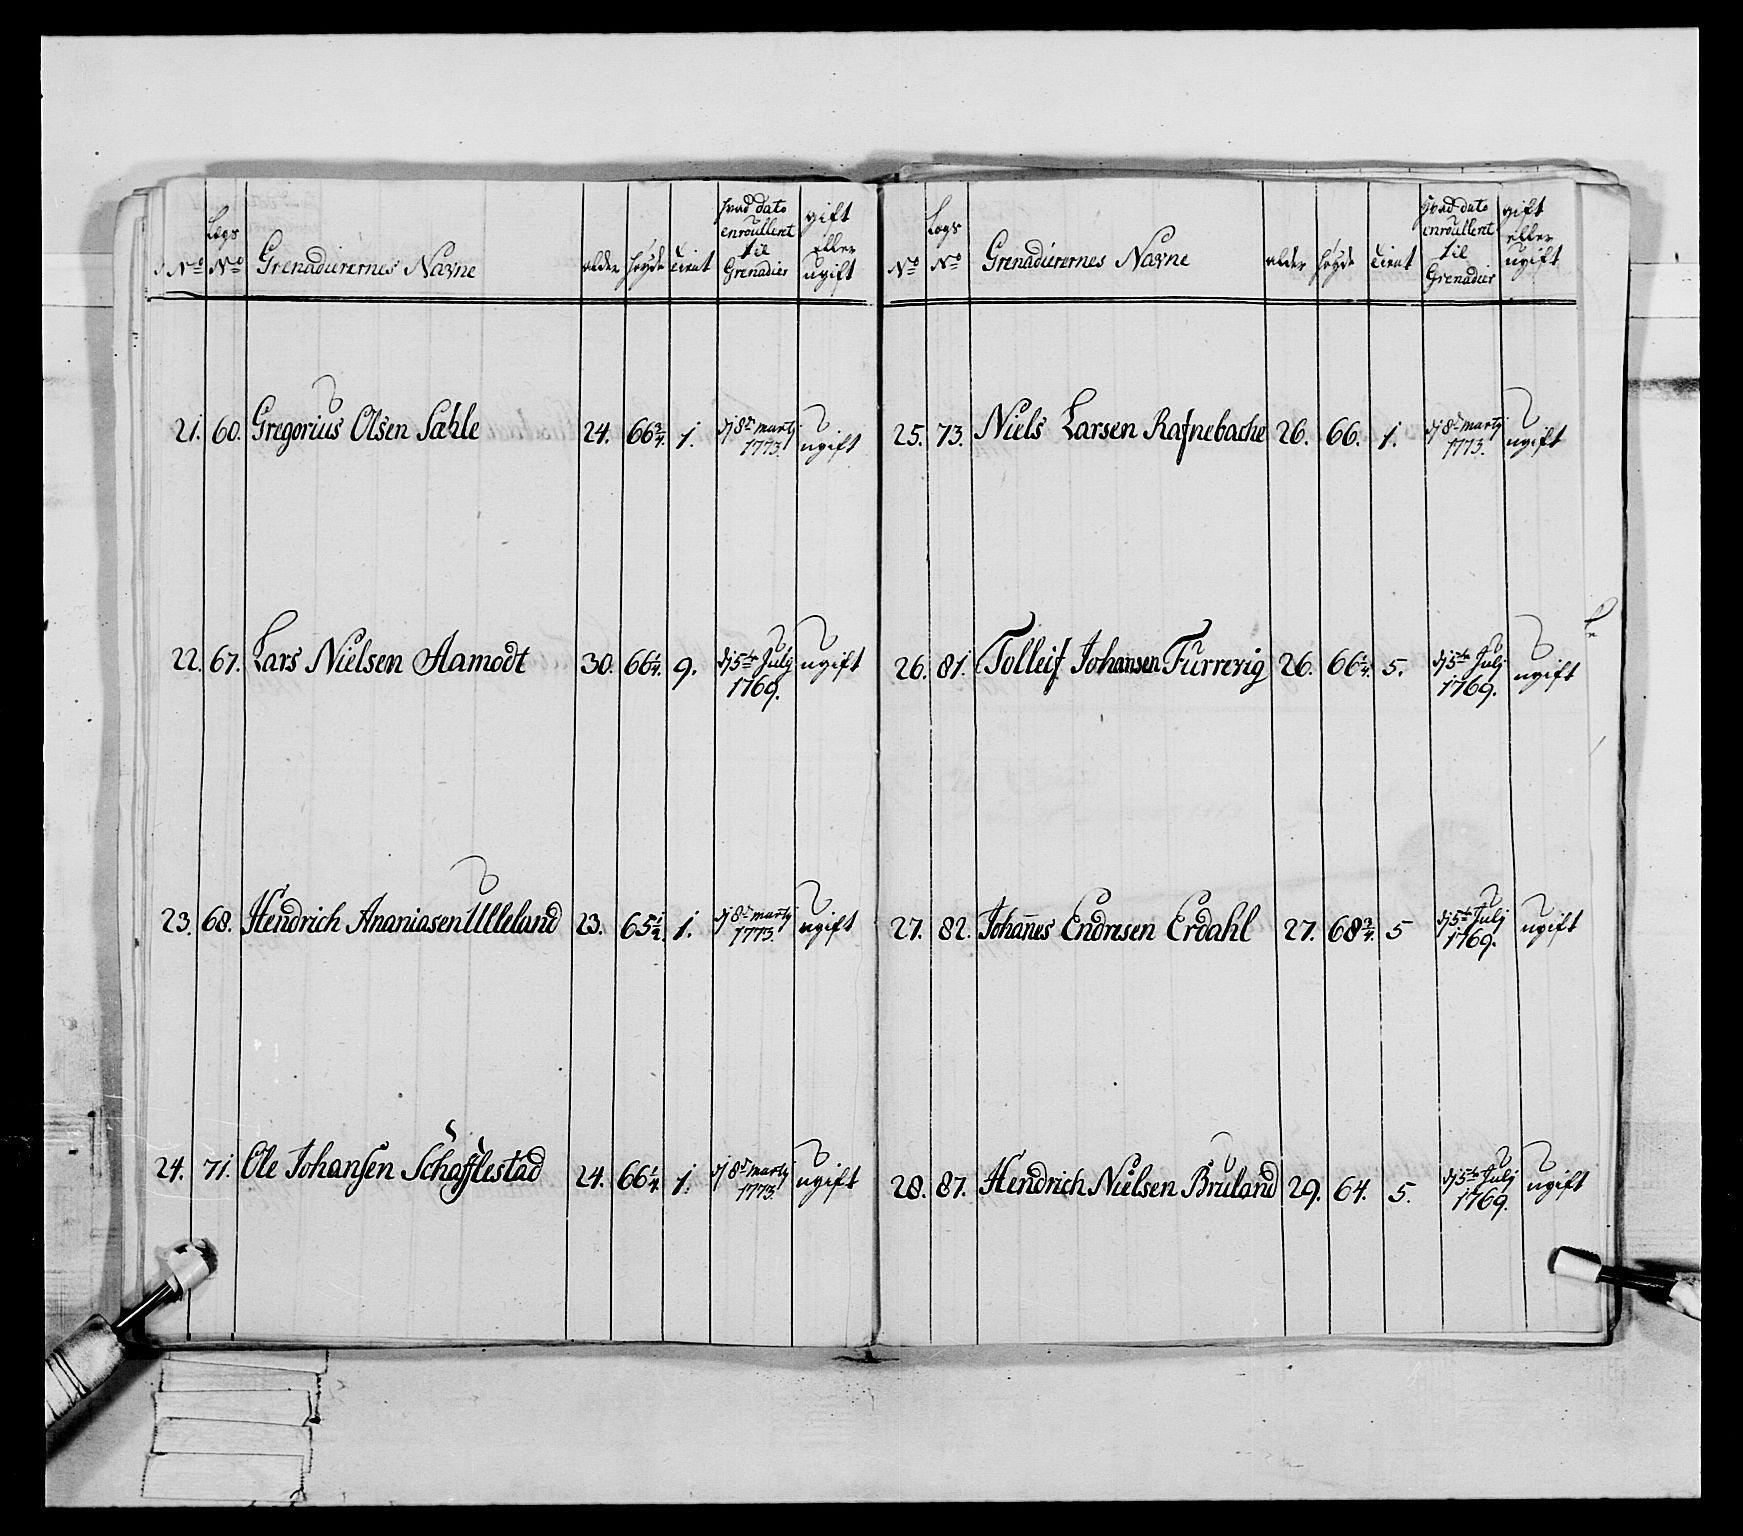 No Legs No Grenadierernes Navne alder høyde tient hvad dato enroullert til Grenadier gift eller ugift
21. 60. Gregorius Olsen Sæhle 24. 66 3/4. 1. dj 8de martj 1773. ugift
22. 67. Lars Nielsen Aamodt 30. 66 1/4. 9. dj 5te Julj 1769. ugift
23. 68. Hendrich Ananiasen Ulleland 23. 65 1/2. 1. dj 8de martj 1773. ugift
24. 71. Ole Johansen Schafflestad 24. 66 1/4. 1. dj 8de martj 1773 ugift
No Legs No Grenadierernes Navne alder høyde tient hvad dato enroullert til Grenadier gift eller ugift
25. 73. Niels Larsen Rafnebache 26. 66. 1. dj 8de martj 1773. ugift
26. 81. Tolleif Johansen Furrevig 26. 66 1/4. 5. dj 5te Julj 1769. ugift
27. 82. Johañes Endresen Erdahl 27. 68 3/4. 5 dj 5te Julj 1769. ugift
28. 87. Hendrich Nielsen Bruland 29. 64. 5. dj 5te Julj 1769. ugift